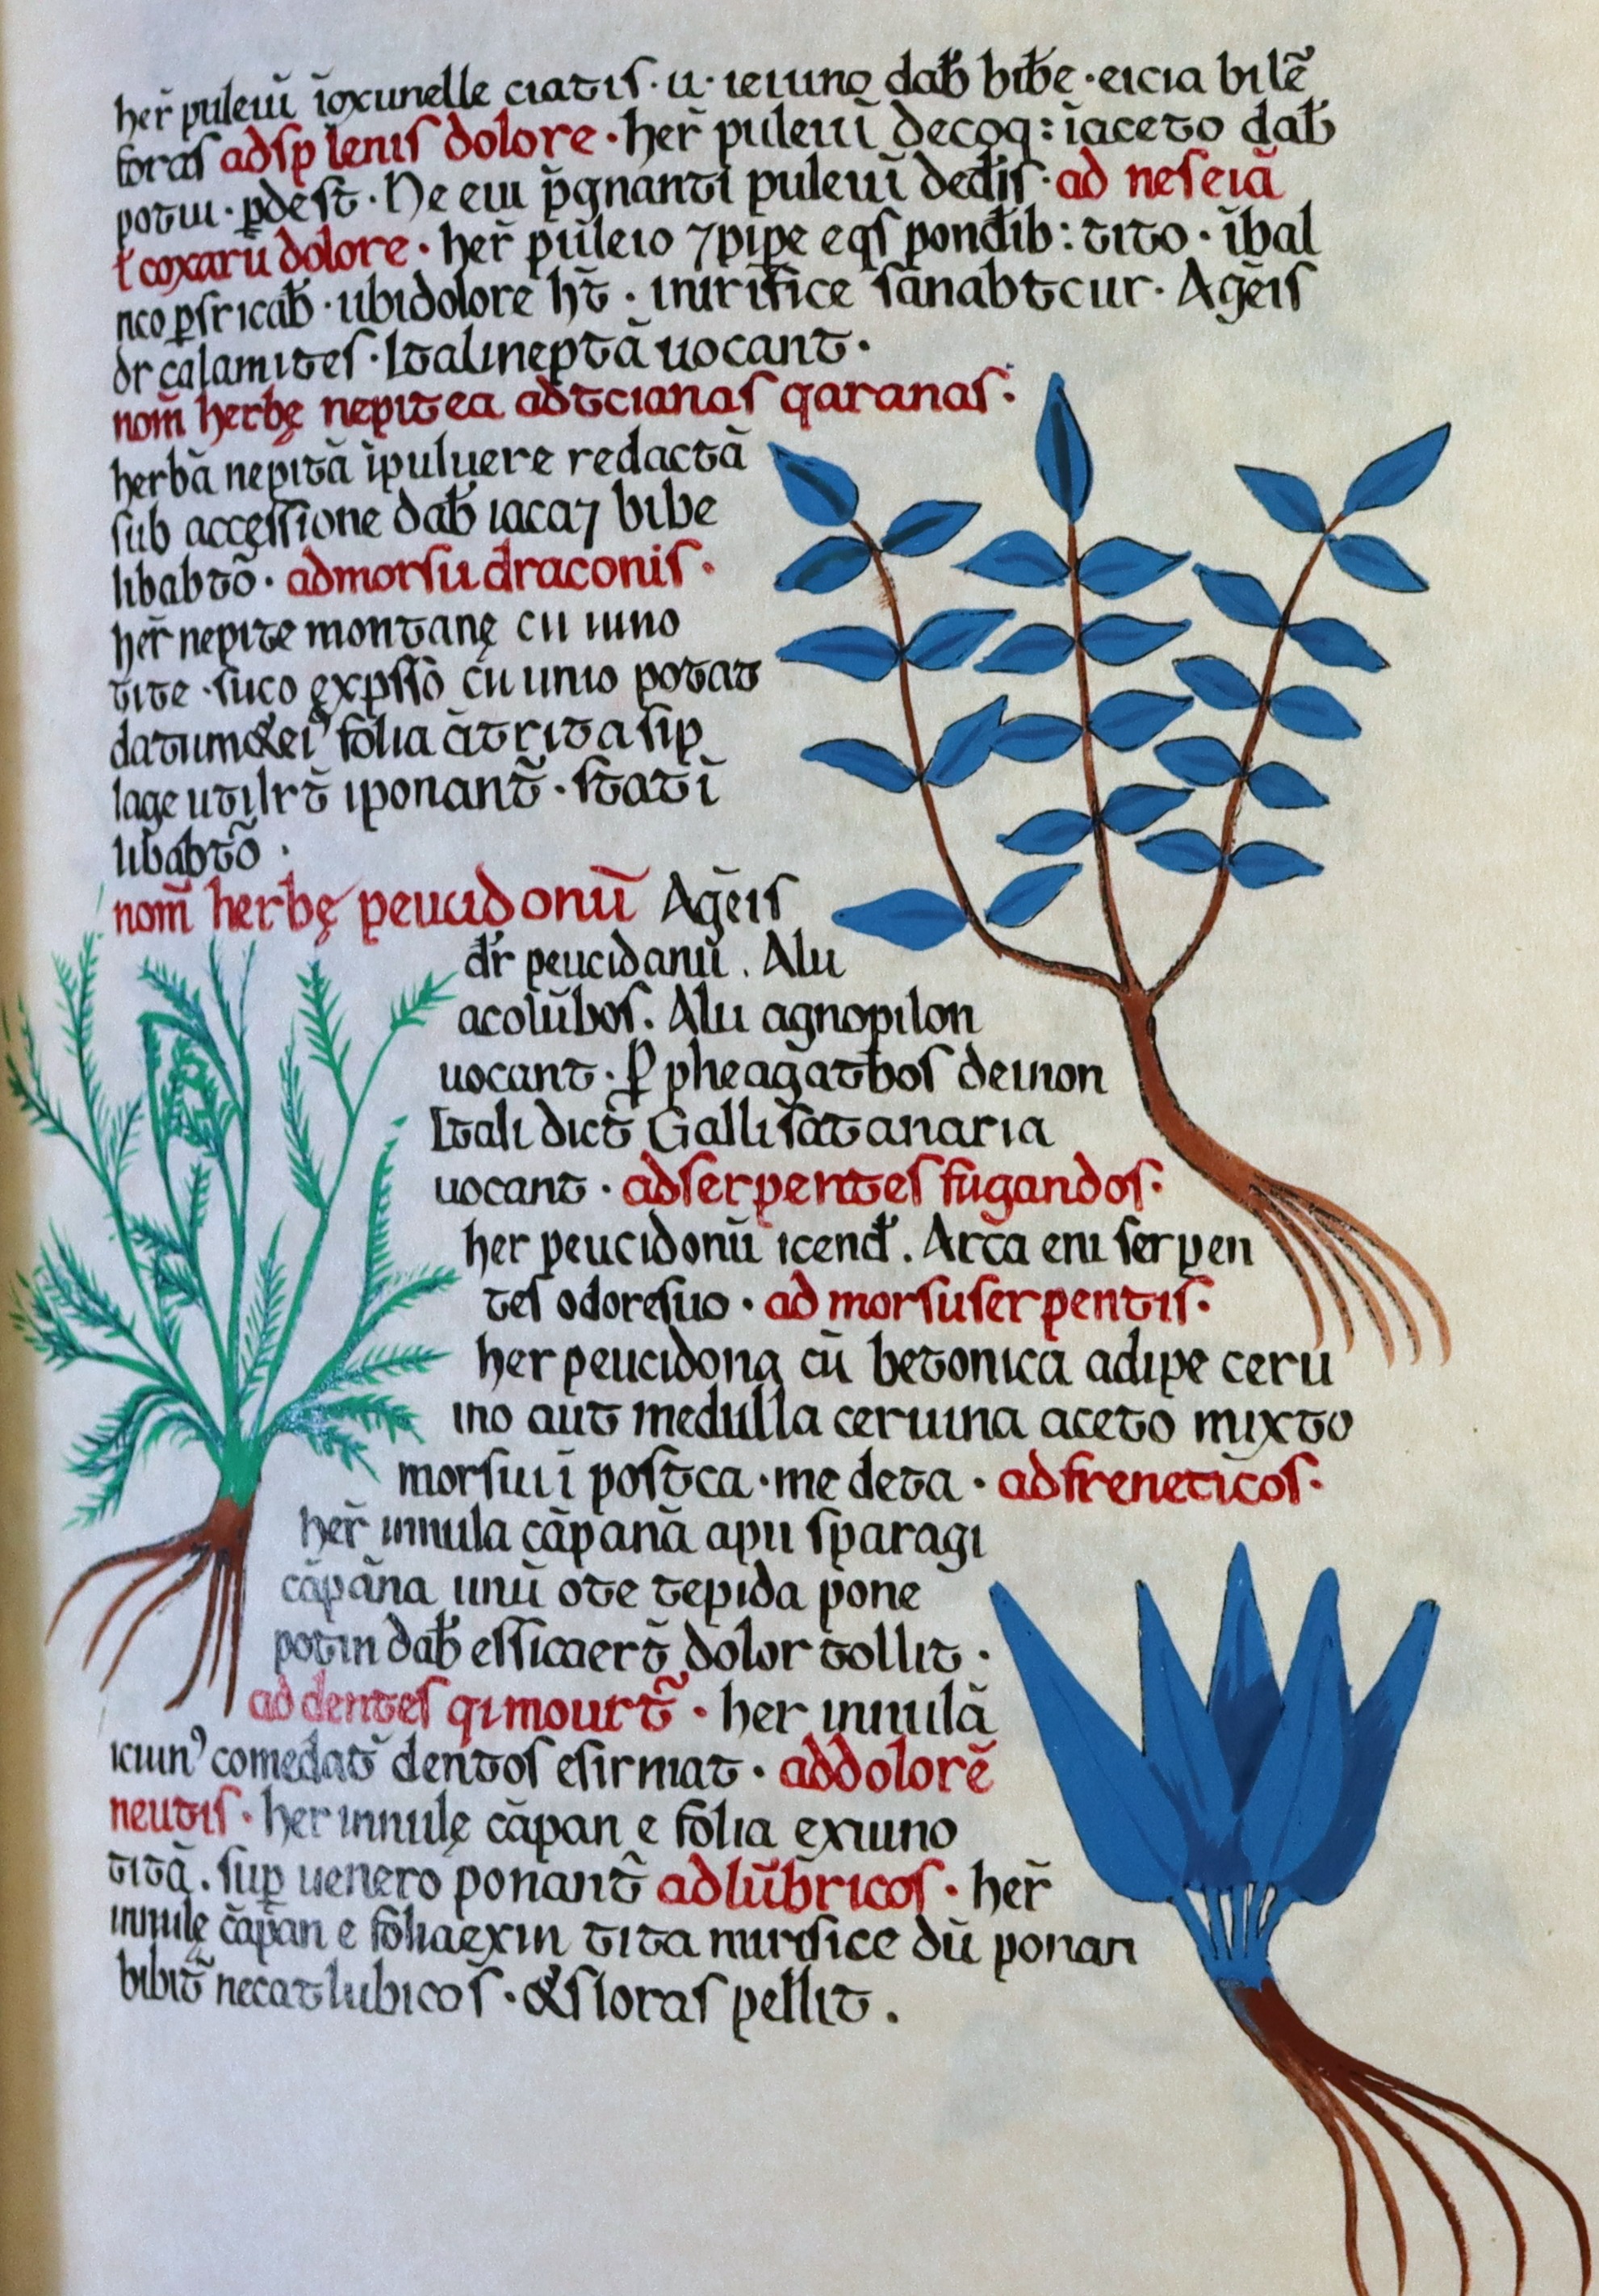 her̄ puleiū īoxcunelle ciatis · u · ieiuno dab̄ bibe · eicia bilē
foras adsplenis dolore · her̄ puleiū decoq: īaceto dab̄
potui · pdest̄ · Ne eui p̄gnanti puleiū dedis · ad nescia
ł coxarū dolore · her̄ puleio ⁊pipe eqs pondib: tito · ībal
nco pfricab̄ · ubidolore ht̄ · mirifice sanabtcur · Agēis
dr calamites · Italineptā uocant ·
nom̄ herbę nepitea adtcianas qaranas ·
herbā nepitā īpuluere redactā
sub accęssione dab̄ iaca⁊ bibe
libabtō · admorsu draconis ·
her̄ nepite montanę cū iuno
tite · suco ęxpssō cū unio potat
datum&ei⁹ folia ātrita sip
lage utilrt̄ iponant̄ · statī
libabtō ·
nom̄ herbę peucidonū Agēis
dr peucidanū . Alu
acolūbos . Alu agnopilon
uocant · P pheagatbos demon
Itali dict̄ Galli satanaria
uocant · adserpentes fugandos ·
her peucidonū icend . Arcā eni serpen
tes odoresuo · ad morsuserpentis ·
her peucidona cū betonica adipe ceru
ino aut medulla ceruina aceto mixto
morsui ī postca · me deta · adfreneticos ·
her̄ innula cāpanā apu sparagi
cāpāna unū ote tepida pone
potin dab̄ efficaert̄ dolor tollit ·
ad dentes qimourt̄ · her innulā
ieiun⁹ comedat̄ dentos esirmat · addolorē
neutis · her innulę cāpan e folia exiuno
titā . sup uenero ponant̄ adlūbricos · her̄
innulę cāpan e foliaexin tita mirifice dū ponan
bibit̄ necatlubicos · &sloras pellit .